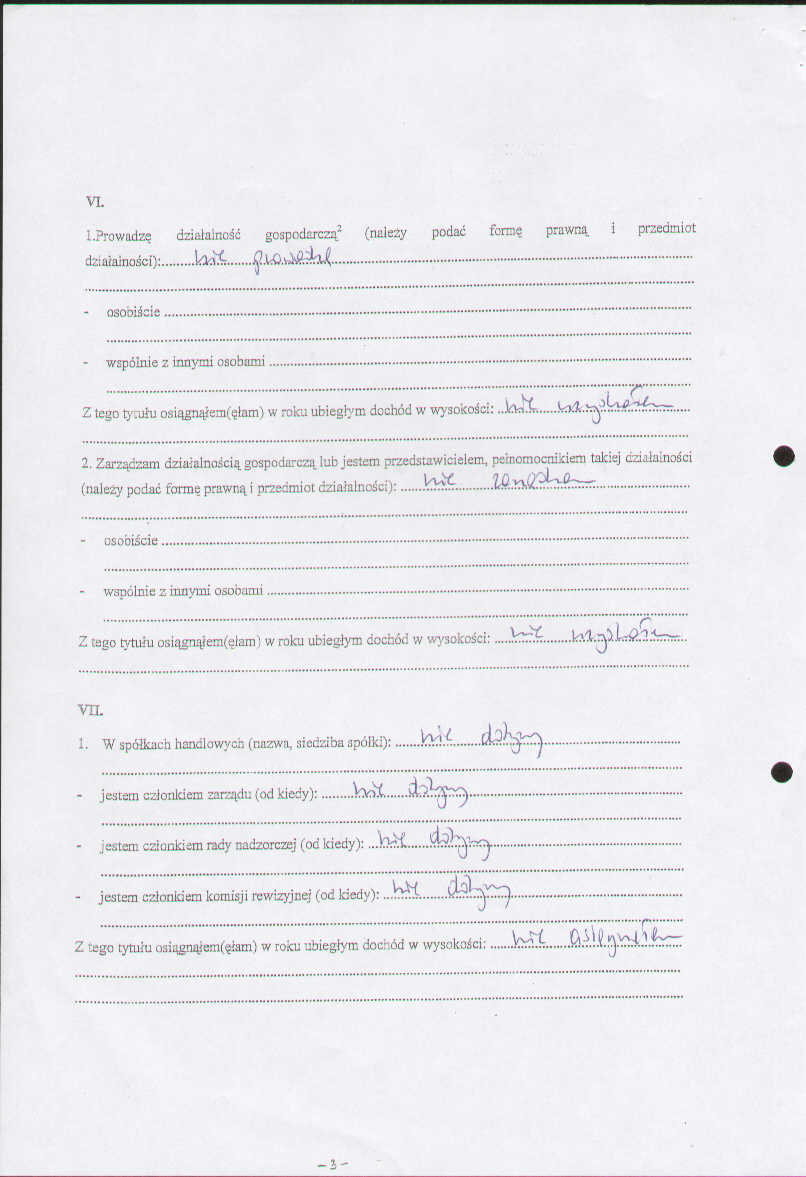 VI.
1.Prowadzę działalność gospodarczą² (należy podać formę prawną i przedmiot
działalności):.........nie prowadzę
- osobiście
- wspólnie z innymi osobami
Z tego tytułu osiągnąłem(ęłam) w roku ubiegłym dochód w wysokości: ..nie uzyskałem
2. Zarządzam działalnością gospodarczą lub jestem przedstawicielem, pełnomocnikiem takiej działalności
(należy podać formę prawną i przedmiot działalności): ......nie
- osobiście
- wspólnie z innymi osobami
Z tego tytułu osiągnąłem(ęłam) w roku ubiegłym dochód w wysokości: ....nie uzyskałem
VII.
1. W spółkach handlowych (nazwa, siedziba spółki): ......nie dotyczy
- jestem członkiem zarządu (od kiedy): ........nie dotyczy
- jestem członkiem rady nadzorczej (od kiedy): ..nie dotyczy
- jestem członkiem komisji rewizyjnej (od kiedy): ..nie dotyczy
Z tego tytułu osiągnąłem(ęłam) w roku ubiegłym dochód w wysokości: ......nie osiągnąłem
- 3 -